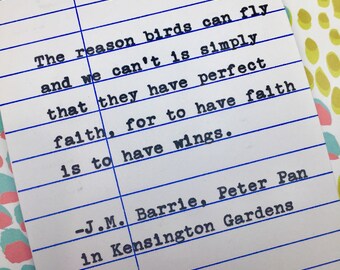 The reason birds can fly
and we can't is simply
that they have perfect
faith, for to have faith
is to have wings.
-J.M. Barrie, Peter Pan
in Kensington Gardens